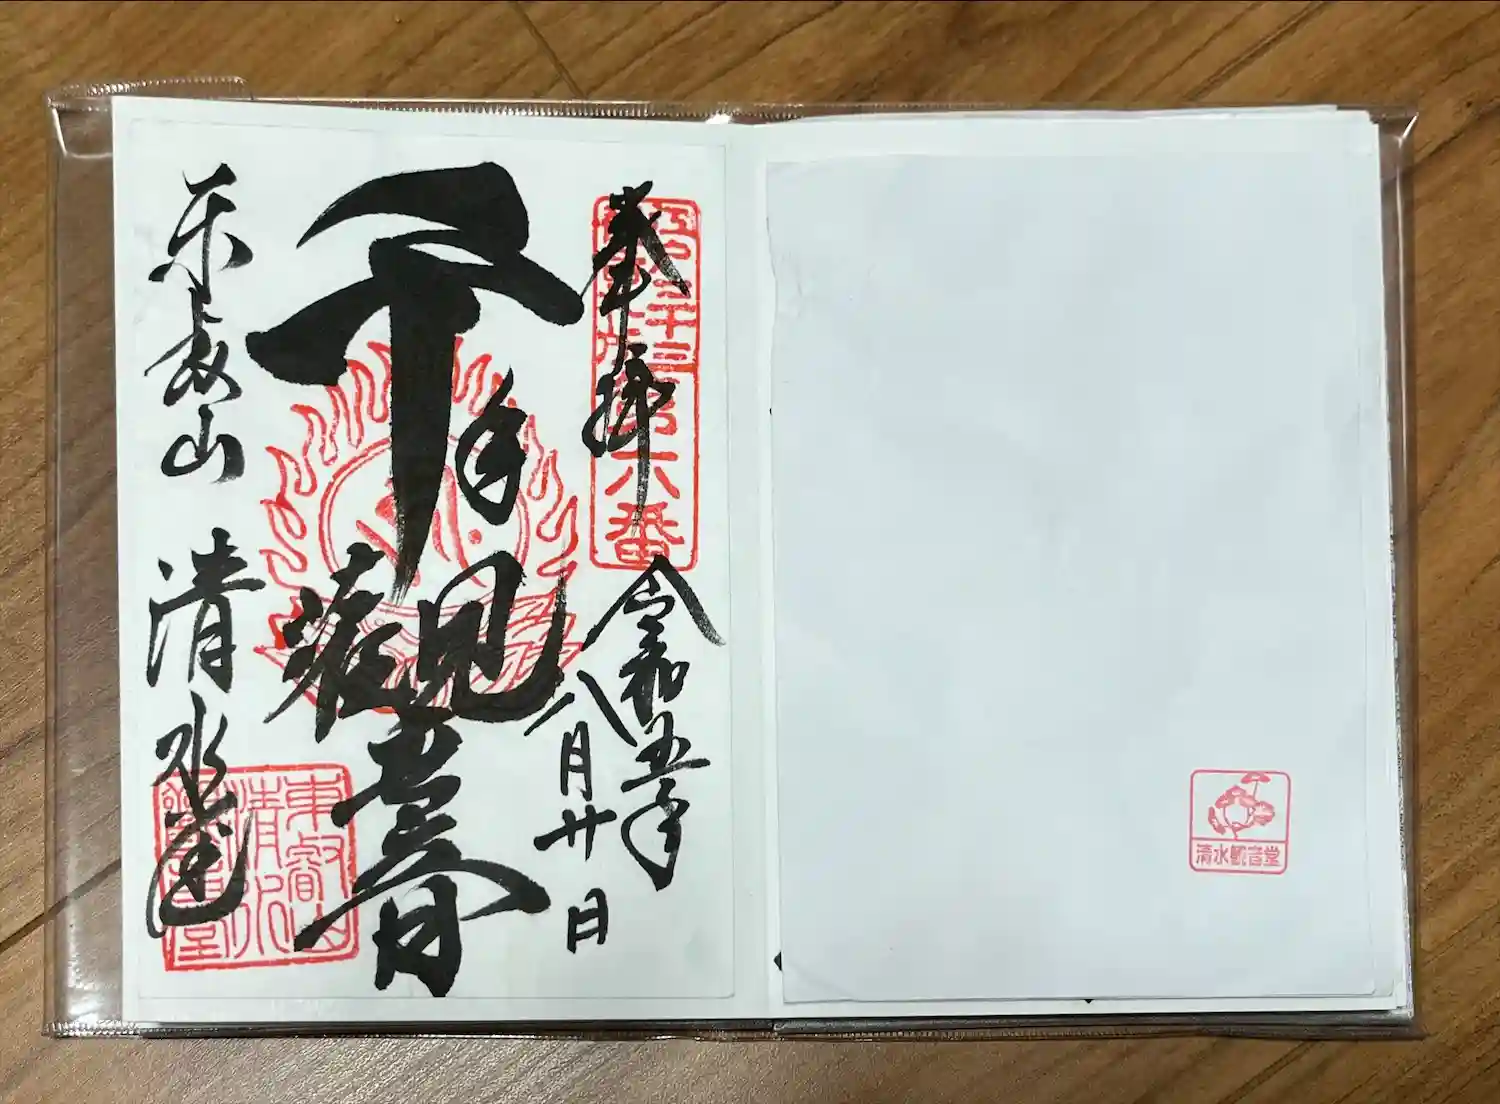 奉拝
令和五年
八月廿日
千手
観世音
東叡山 清水堂
第六番
東叡山
清水
観音堂
清水観音堂